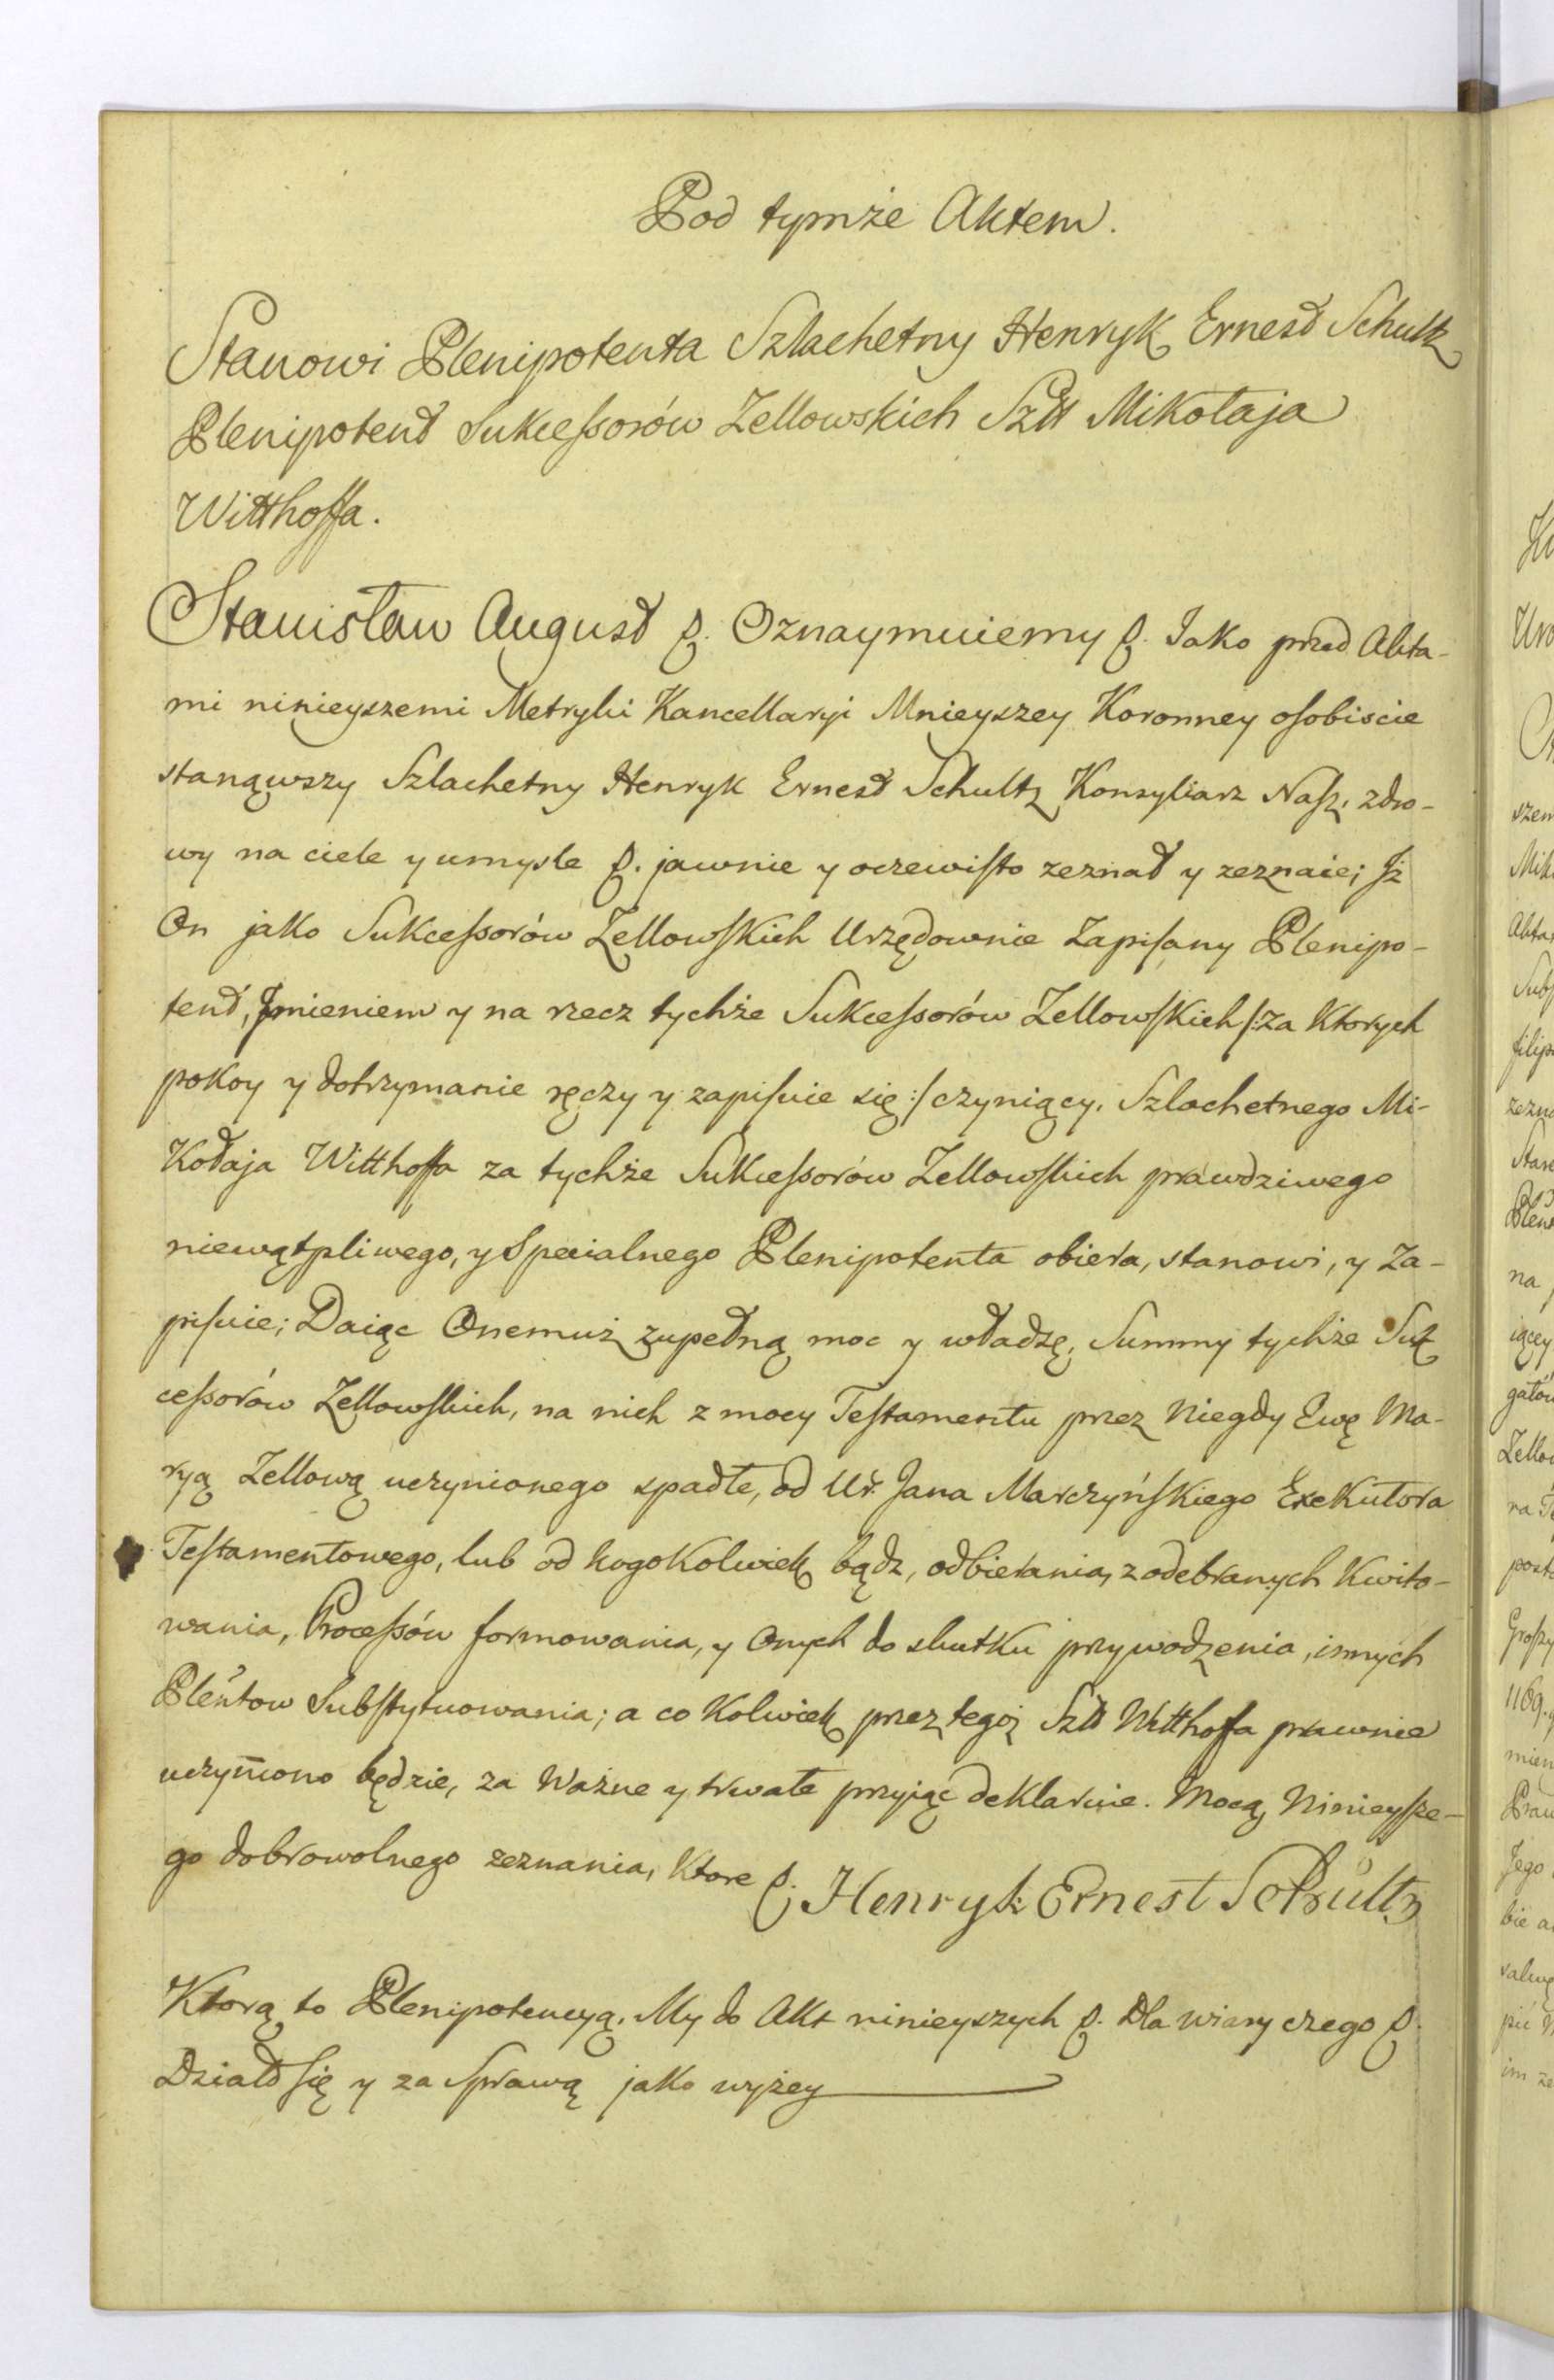 Pod tymże Aktem.
Stanowi Plenipotenta Szlachetny Henryk Ernest Schultz
Plenipotent Sukcessorów Zellowskich Szltt Mikołaja
Witthoffa.
Stanisław August p. Oznaymuiemy p. Jako przed Akta-
mi ninieyszemi Metryki Kancellaryi Mnieyszey Koronney osobiscie
stanąwszy Szlachetny Henryk Ernest Schultz Konsyliarz Nasz, zdro-
wy na ciele y umysle p. jawnie y oczewisto zeznał y zeznaie; Jż
On jako Sukcessorów Zellowskich Urzędownie Zapisany Plenipo-
tent, Jmieniem y na rzecz tychże Sukcessorów Zellowskich /:za ktorych
pokoy y dotrzymanie ręczy y zapisuie się:/ czyniący, Szlachetnego Mi-
kołaja Witthoffa za tychże Sukcessorów Zellowskich prawdziwego
niewątpliwego, y Specialnego Plenipotenta obiera, stanowi, y Za-
pisuie; Daiąc Onemuż zupełną moc y władzę, Summy tychże Suk
cessorów Zellowskich, na nich z mocy Testamentu przez Niegdy Ewę Ma-
ryą Zellową uczynionego spadłe, od Ur. Jana Marczyńskiego Exekutora
Testamentowego, lub od kogokolwiek bądz, odbierania, z odebranych kwito-
wania, Processów formowania, y Onych do skutku przywodzenia, innych
Plentow Substytuowania; a co kolwiek przez tegoż Szltt Witthoffa prawnie
uczyniono będzie, za Ważne y trwałe przyiąć deklaruie. Mocą Ninieysze-
go dobrowolnego zeznania, Ktore p. Henryk Ernest Schultz
Ktorą to Plenipotencyą, My do Akt ninieyszych p. Dla wiary czego p.
Działo się y za Sprawą jako wyżey